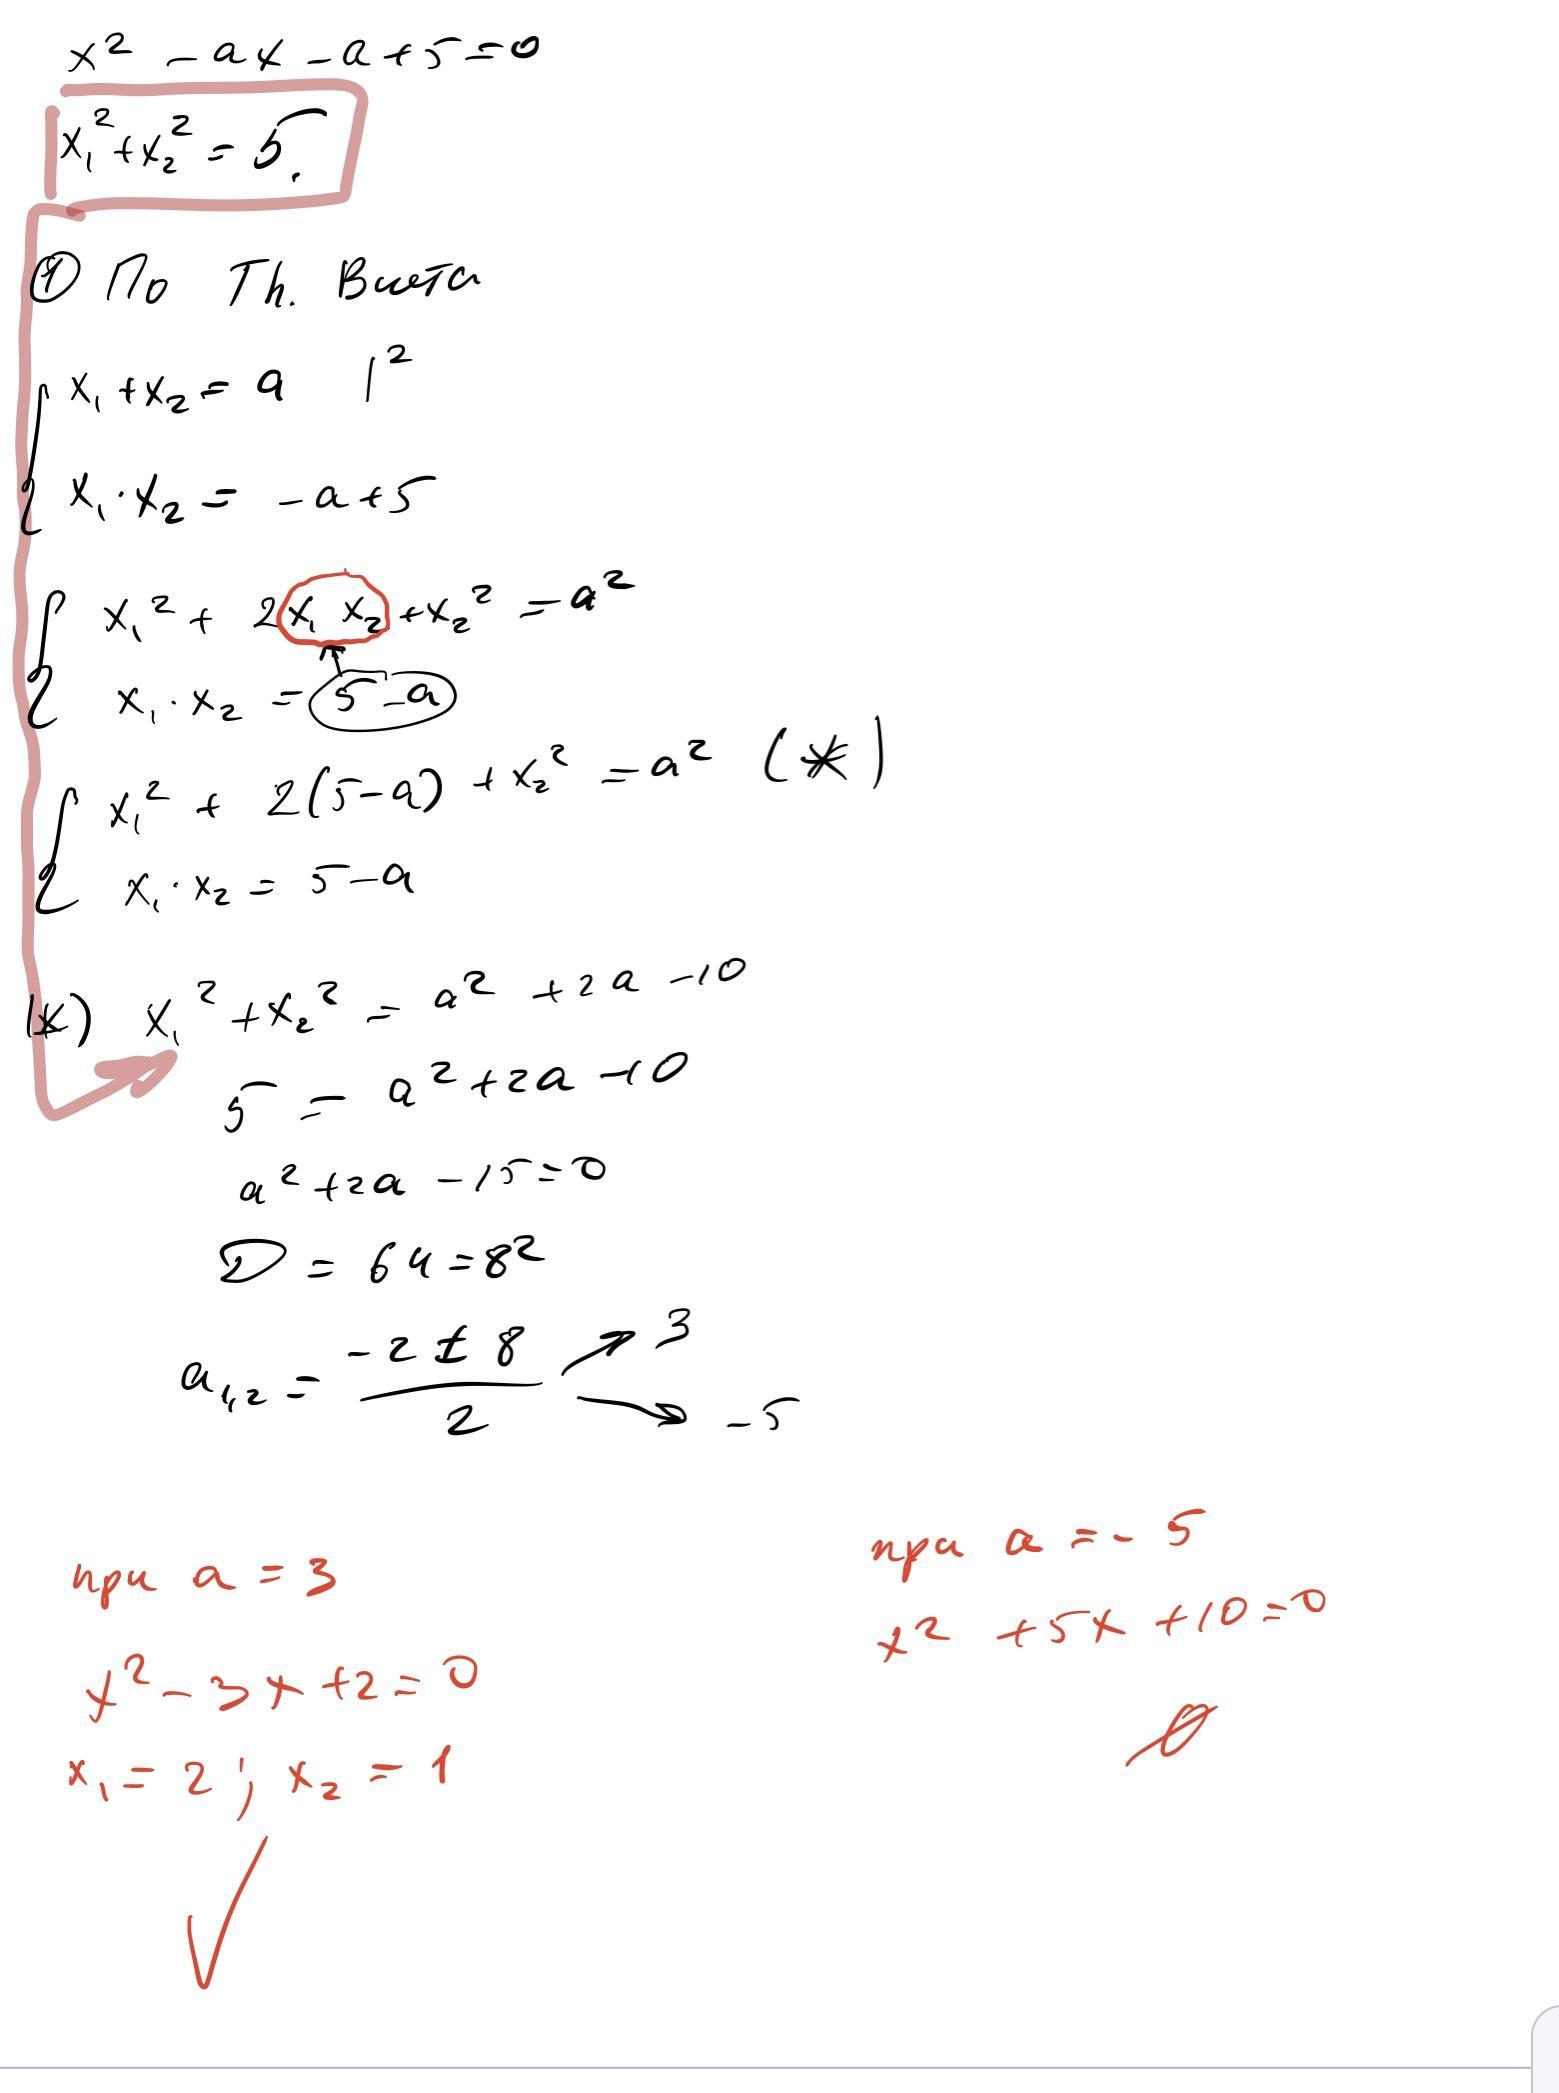 x² - ax - a + 5 = 0
x₁² + x₂² = 5.
① По Th. Виета
x₁ + x₂ = a |²
x₁ · x₂ = -a + 5
x₁² + 2x₁ x₂ + x₂² = a²
x₁ · x₂ = 5 - a
x₁² + 2(5 - a) + x₂² = a² (*)
x₁ · x₂ = 5 - a
(*) x₁² + x₂² = a² + 2a - 10
5 = a² + 2a - 10
a² + 2a - 15 = 0
D = 64 = 8²
a₁,₂ = (-2 ± 8) / 2 ↗ 3 ↘ -5
при a = 3
x² - 3x + 2 = 0
x₁ = 2 ; x₂ = 1
✓
при a = - 5
x² + 5x + 10 = 0
∅